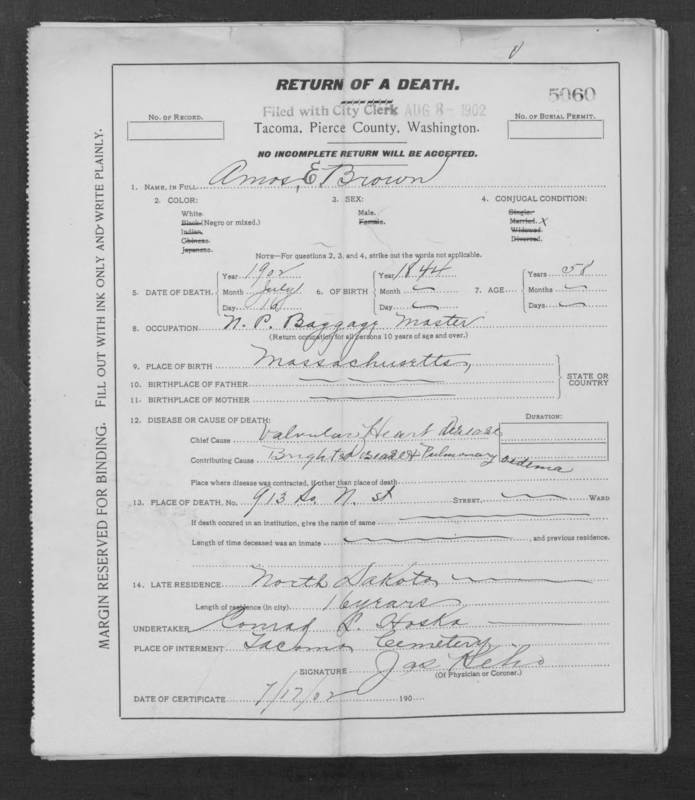 RETURN OF A DEATH.
5060
Filed with City Clerk AUG 8 - 1902
No. of Record.
Tacoma, Pierce County, Washington.
No. of Burial Permit.
NO INCOMPLETE RETURN WILL BE ACCEPTED.
1. NAME, IN FULL Amos, E. Brown
2. COLOR:
3. SEX:
4. CONJUGAL CONDITION:
White.
Male.
Single.
Black (Negro or mixed.)
Female.
Married. x
Indian.
Widowed
Chinese.
Divorced.
Japanese.
NOTE—For questions 2, 3, and 4, strike out the words not applicable.
5. DATE OF DEATH. Year 1902
Month July
Day 16
6. OF BIRTH Year 1844
Month
Day
7. AGE Years 58
Months
Days
8. OCCUPATION N. P. Baggage Master
(Return occupation for all persons 10 years of age and over.)
9. PLACE OF BIRTH Massachusetts,
10. BIRTHPLACE OF FATHER
11. BIRTHPLACE OF MOTHER
STATE OR COUNTRY
12. DISEASE OR CAUSE OF DEATH:
DURATION:
Chief Cause Valvular Heart Disease
Contributing Cause Brights Disease & Pulmonary oedema
Place where disease was contracted, if other than place of death
13. PLACE OF DEATH, No. 913 So. N. st STREET, WARD
If death occured in an institution, give the name of same
Length of time deceased was an inmate , and previous residence.
14. LATE RESIDENCE North Dakota
Length of residence (in city) 16 years
UNDERTAKER Conrad L. Hoska
PLACE OF INTERMENT Tacoma Cemetery
SIGNATURE Jas
(Of Physician or Coroner.)
DATE OF CERTIFICATE 7/17/02 190
MARGIN RESERVED FOR BINDING. FILL OUT WITH INK ONLY AND WRITE PLAINLY.